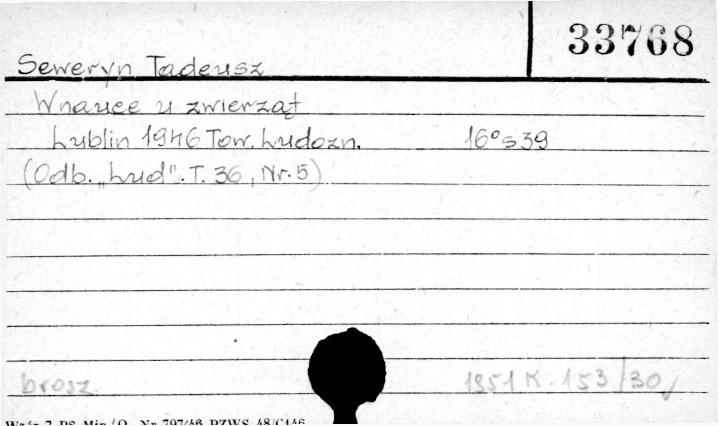 33768
Seweryn Tadeusz
W nauce u zwierząt
Lublin 1946 Tow. Ludozn. 16° s 39
(Odb. „Lud". T. 36, Nr. 5)
brosz. 1951 K. 153/30
Wzór 7 PS Min/O. Nr 797/46 PZWS 48/C446